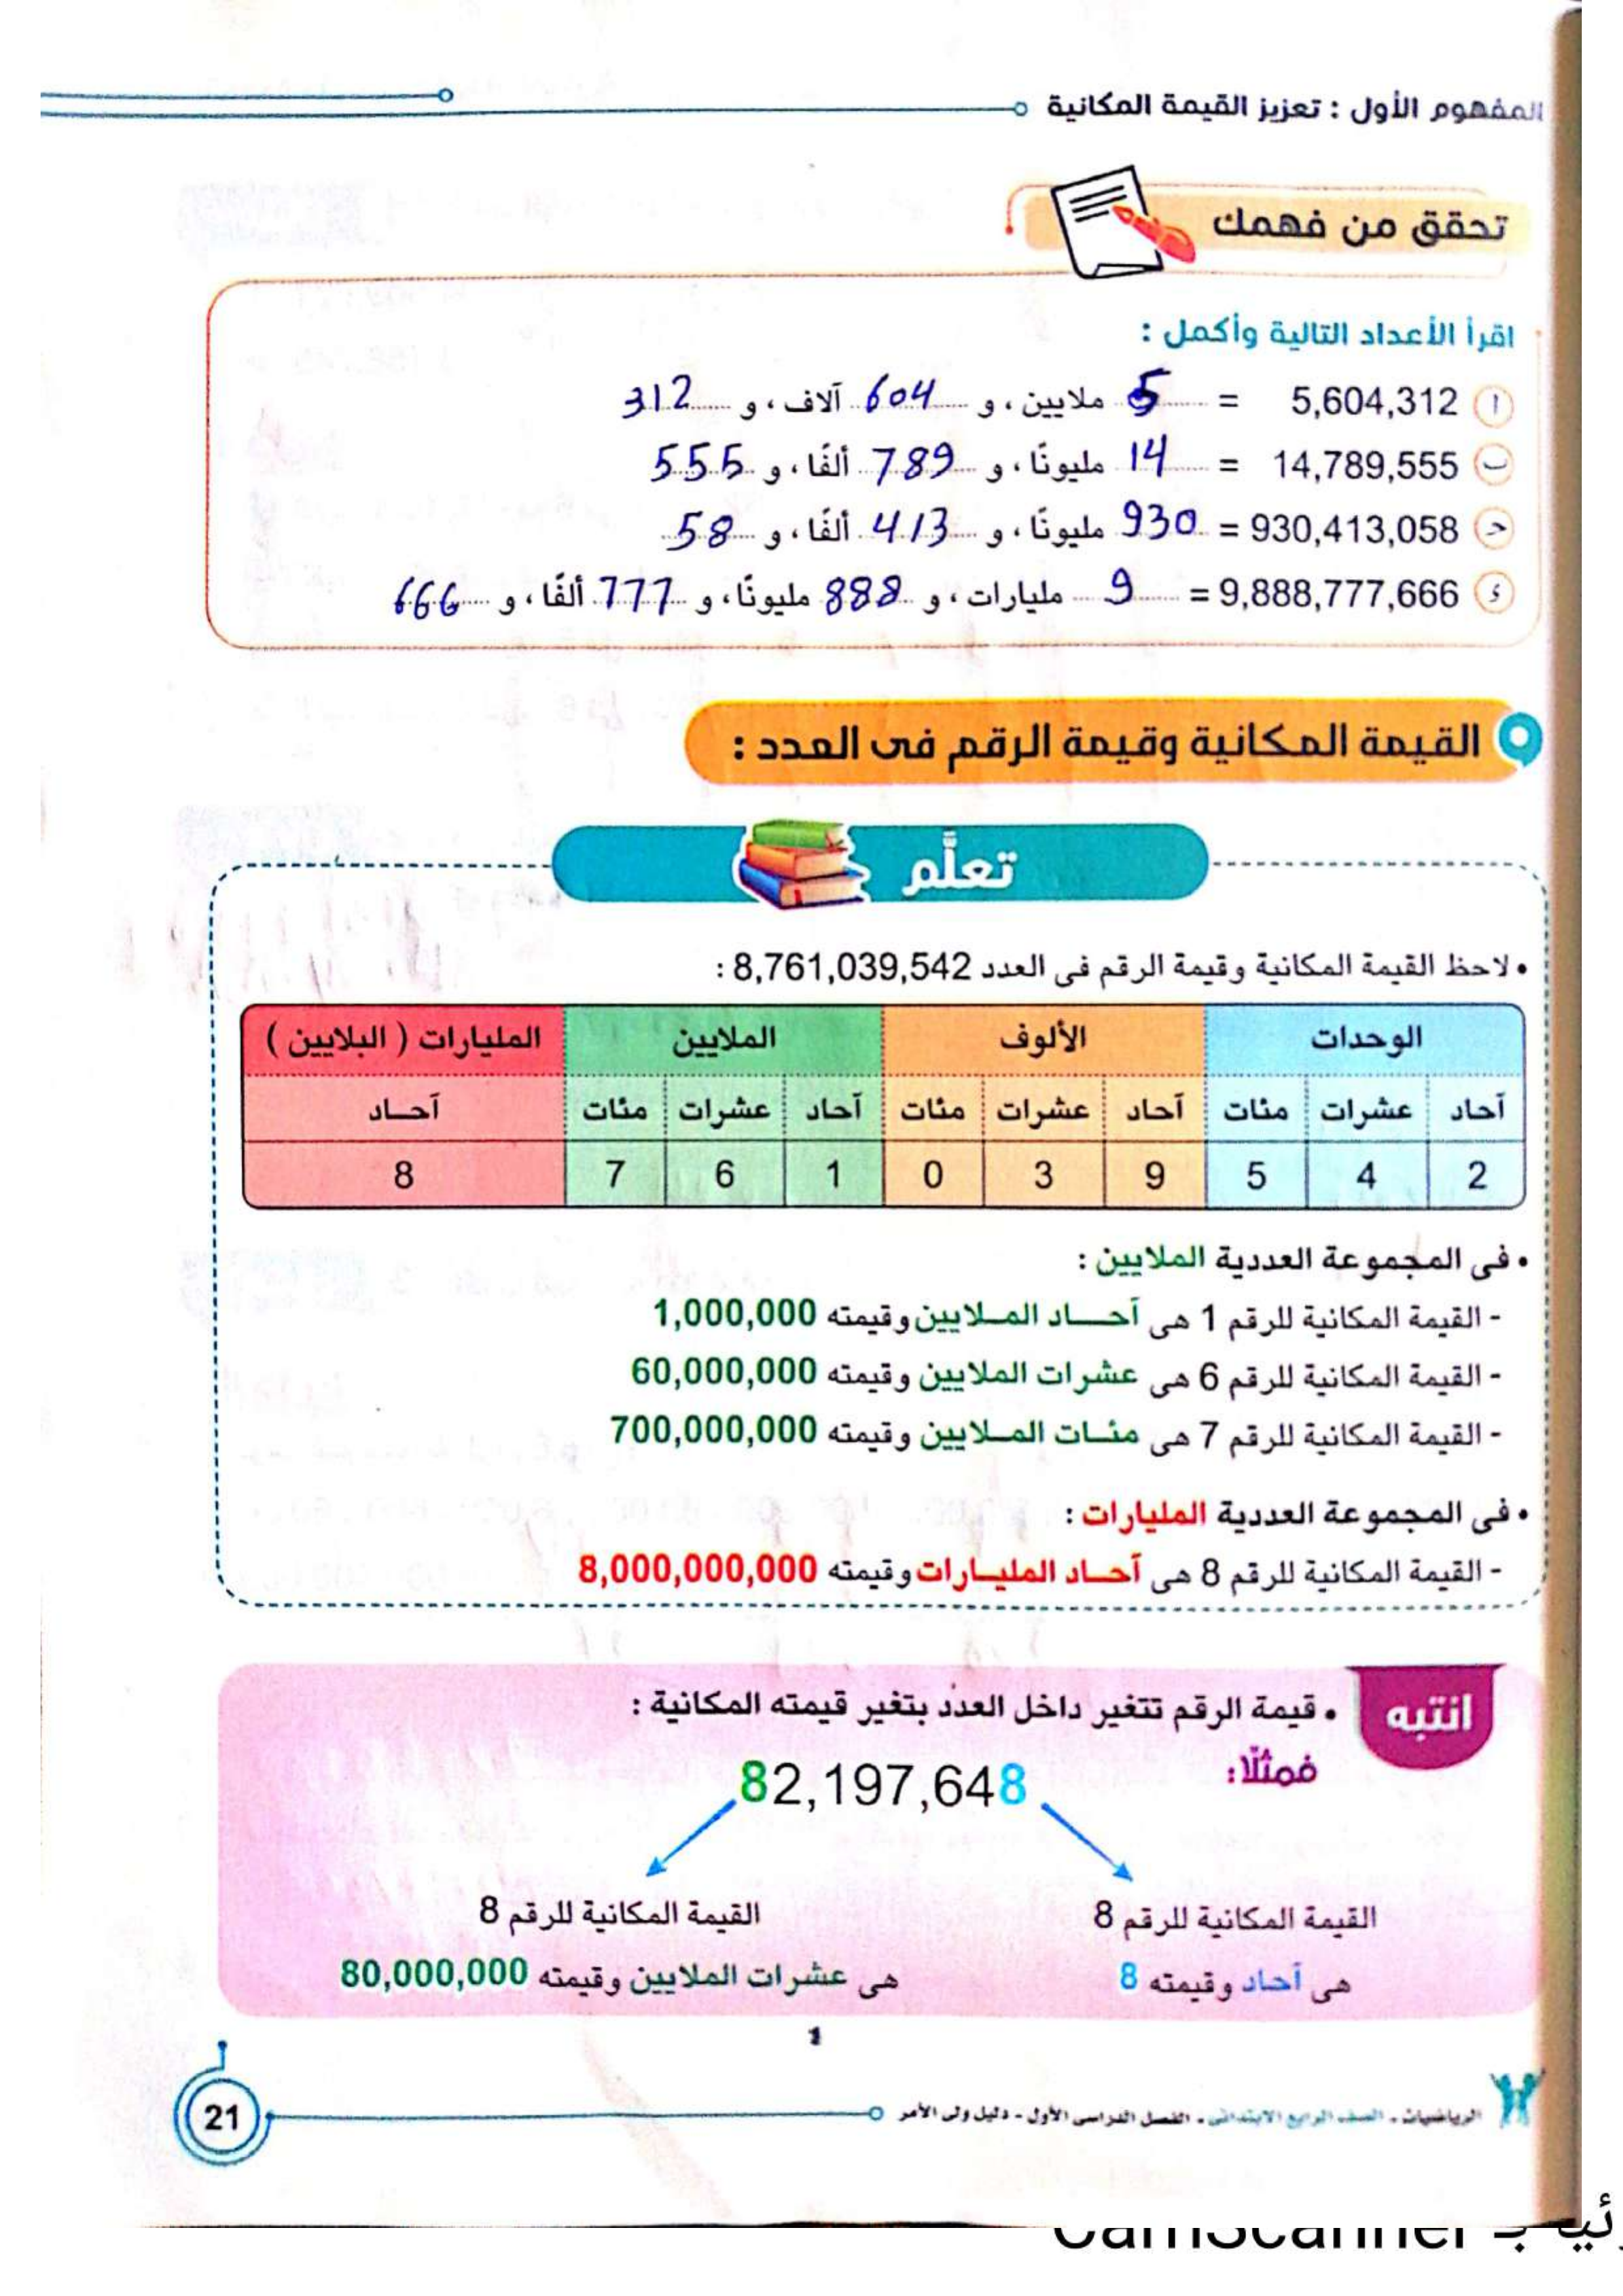 المفهوم الأول : تعزيز القيمة المكانية
تحقق من فهمك
اقرأ الأعداد التالية وأكمل :
أ 5,604,312 = 5 ملايين ، و 604 آلاف ، و 312
ب 14,789,555 = 14 مليونًا ، و 789 ألفًا ، و 555
ج 930,413,058 = 930 مليونًا ، و 413 ألفًا ، و 58
د 9,888,777,666 = 9 مليارات ، و 888 مليونًا ، و 777 ألفًا ، و 666
القيمة المكانية وقيمة الرقم فى العدد :
تعلَّم
• لاحظ القيمة المكانية وقيمة الرقم فى العدد 8,761,039,542 :
الوحدات الألوف الملايين المليارات ( البلايين )
آحاد عشرات مئات آحاد عشرات مئات آحاد عشرات مئات آحـاد
2 4 5 9 3 0 1 6 7 8
• فى المجموعة العددية الملايين :
- القيمة المكانية للرقم 1 هى آحـــاد المـلايين وقيمته 1,000,000
- القيمة المكانية للرقم 6 هى عشرات الملايين وقيمته 60,000,000
- القيمة المكانية للرقم 7 هى مئـات المـلايين وقيمته 700,000,000
• فى المجموعة العددية المليارات :
- القيمة المكانية للرقم 8 هى آحـاد المليـارات وقيمته 8,000,000,000
انتبه
• قيمة الرقم تتغير داخل العدد بتغير قيمته المكانية :
فمثلًا:
82,197,648
القيمة المكانية للرقم 8
هى آحاد وقيمته 8
القيمة المكانية للرقم 8
هى عشرات الملايين وقيمته 80,000,000
1
الرياضيات - الصف الرابع الابتدائى - الفصل الدراسى الأول - دليل ولى الأمر
21
CamScanner